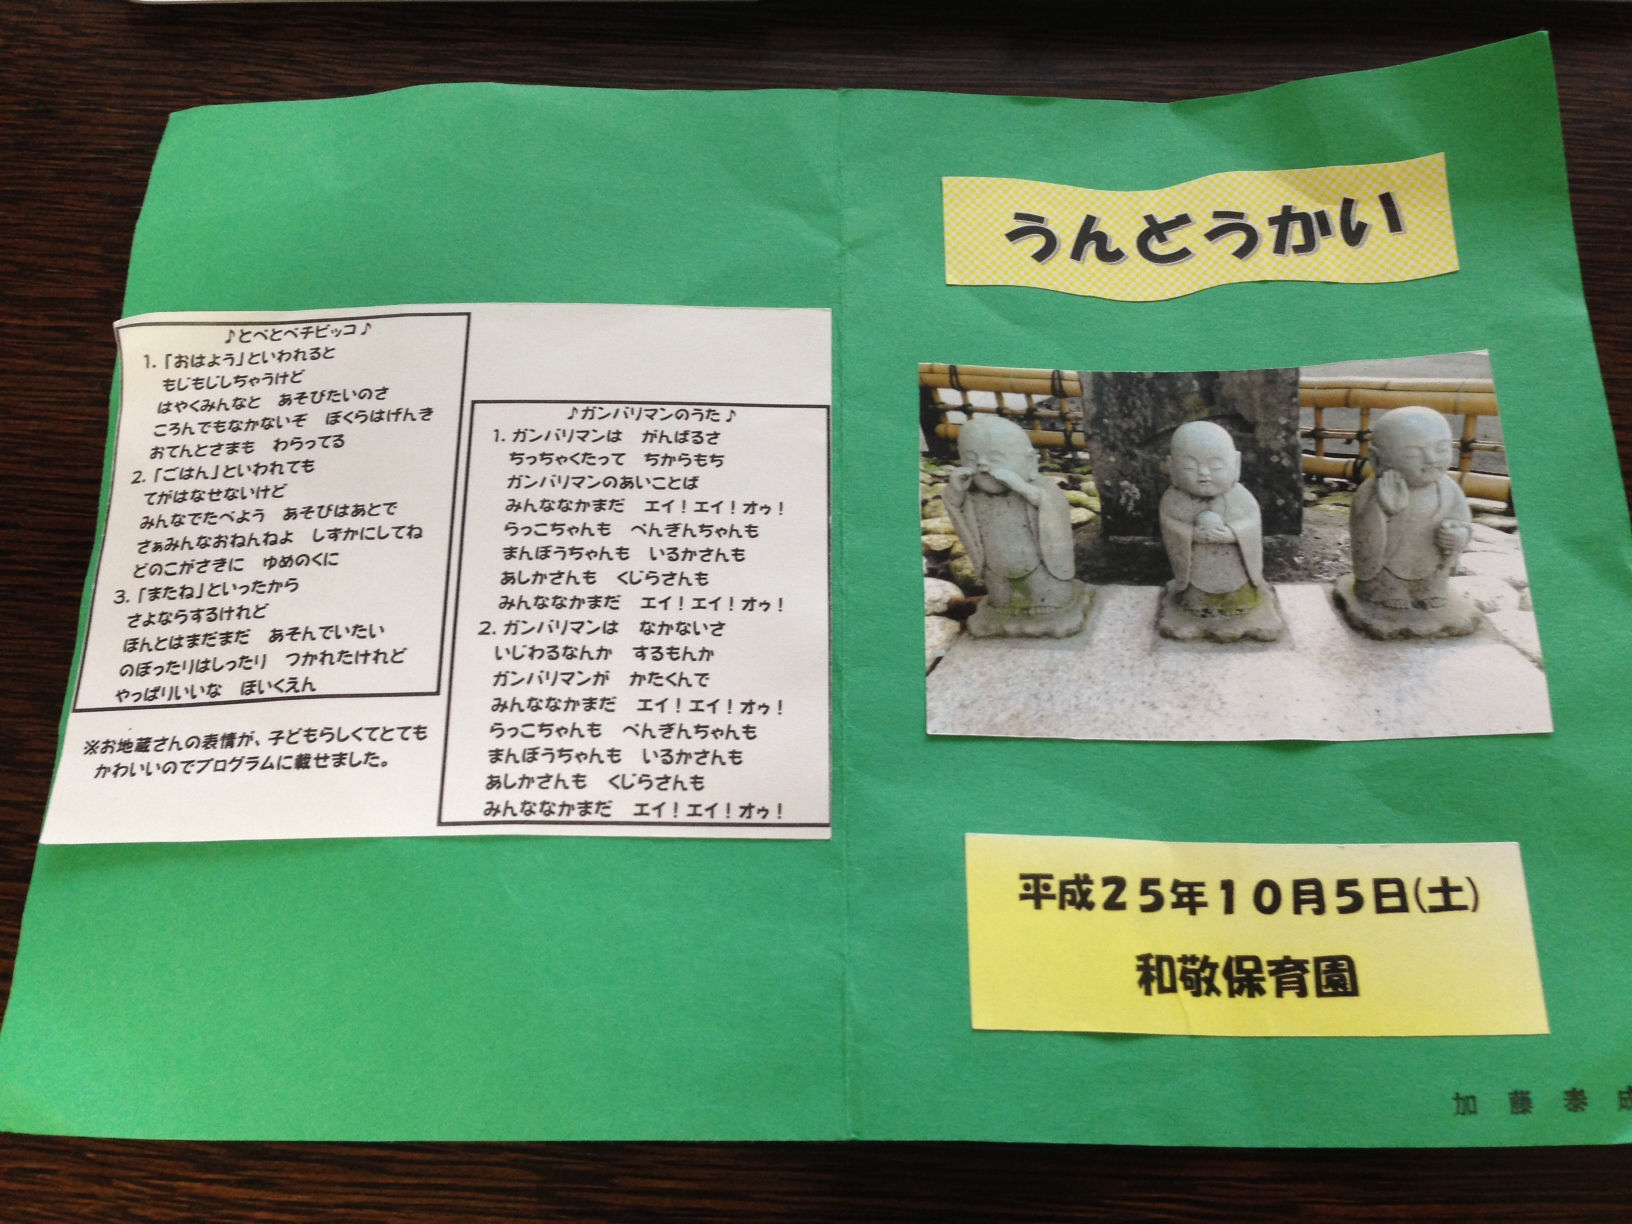 ♪とべとべチビッコ♪
1.「おはよう」といわれると
もじもじしちゃうけど
はやくみんなと　あそびたいのさ
ころんでもなかないぞ　ぼくらはげんき
おてんとさまも　わらってる
2.「ごはん」といわれても
てがはなせないけど
みんなでたべよう　あそびはあとで
さぁみんなおねんねよ　しずかにしてね
どのこがさきに　ゆめのくに
3.「またね」といったから
さよならするけれど
ほんとはまだまだ　あそんでいたい
のぼったりはしったり　つかれたけれど
やっぱりいいな　ほいくえん
※お地蔵さんの表情が、子どもらしくてとても
かわいいのでプログラムに載せました。
♪ガンバリマンのうた♪
1.ガンバリマンは　がんばるさ
ちっちゃくたって　ちからもち
ガンバリマンのあいことば
みんななかまだ　エイ！エイ！オゥ！
らっこちゃんも　ぺんぎんちゃんも
まんぼうちゃんも　いるかさんも
あしかさんも　くじらさんも
みんななかまだ　エイ！エイ！オゥ！
2.ガンバリマンは　なかないさ
いじわるなんか　するもんか
ガンバリマンが　かたくんで
みんななかまだ　エイ！エイ！オゥ！
らっこちゃんも　ぺんぎんちゃんも
まんぼうちゃんも　いるかさんも
あしかさんも　くじらさんも
みんななかまだ　エイ！エイ！オゥ！
うんどうかい
平成２５年１０月５日(土)
和敬保育園
加　藤　泰　成